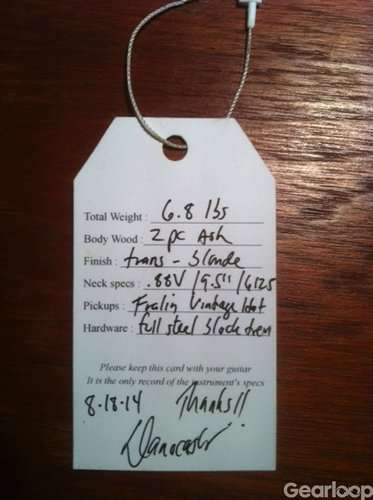 Total Weight : 6.8 lbs
Body Wood : 2pc Ash
Finish : trans - blonde
Neck specs : .88V / 9.5" / 6125
Pickups : Fralin Vintage Hot
Hardware : full steel block trem
Please keep this card with your guitar
It is the only record of the instrument's specs
8.18.14 Thanks!!
Danocaster
Gearloop